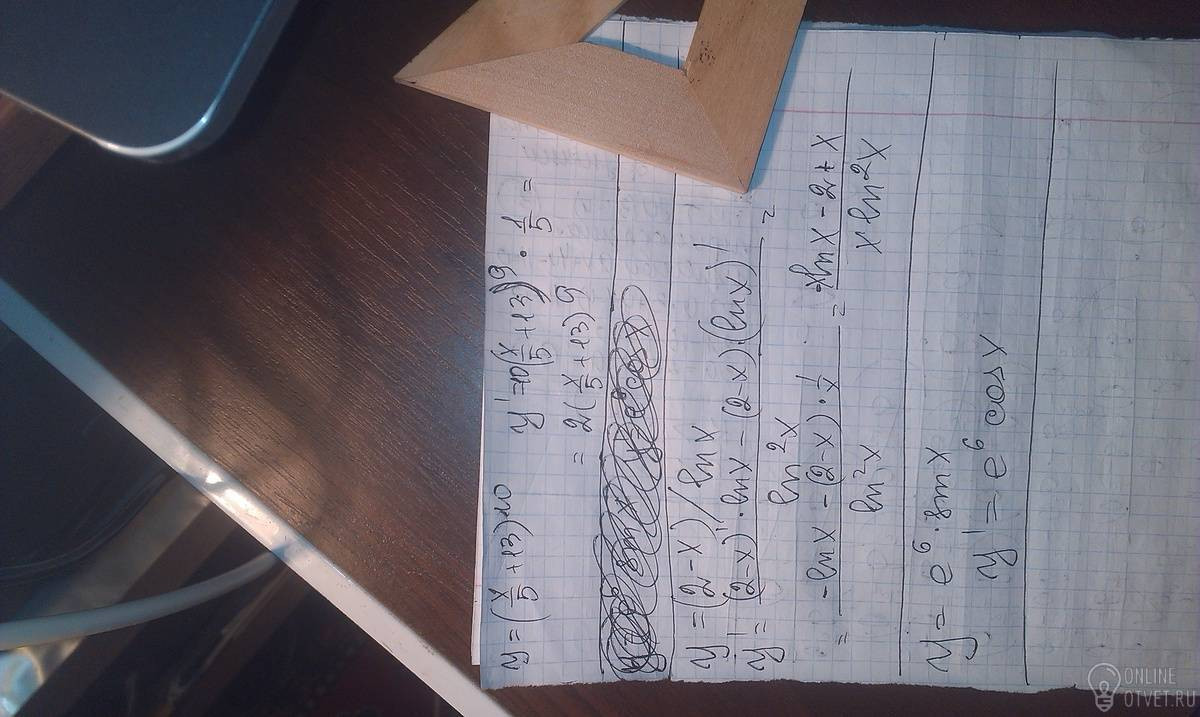 y = (x/5 + 13)^10   y' = 10(x/5 + 13)^9 · 1/5 =
= 2(x/5 + 13)^9
y = (2-x)/lnx
y' = ((2-x)'·lnx - (2-x)·(lnx)')/(ln²x) =
= (-lnx - (2-x)·1/x)/(ln²x) = (-xlnx - 2 + x)/(x ln²x)
y = e^6·sinx
y' = e^6 cosx
ONLINE
OTVET.RU